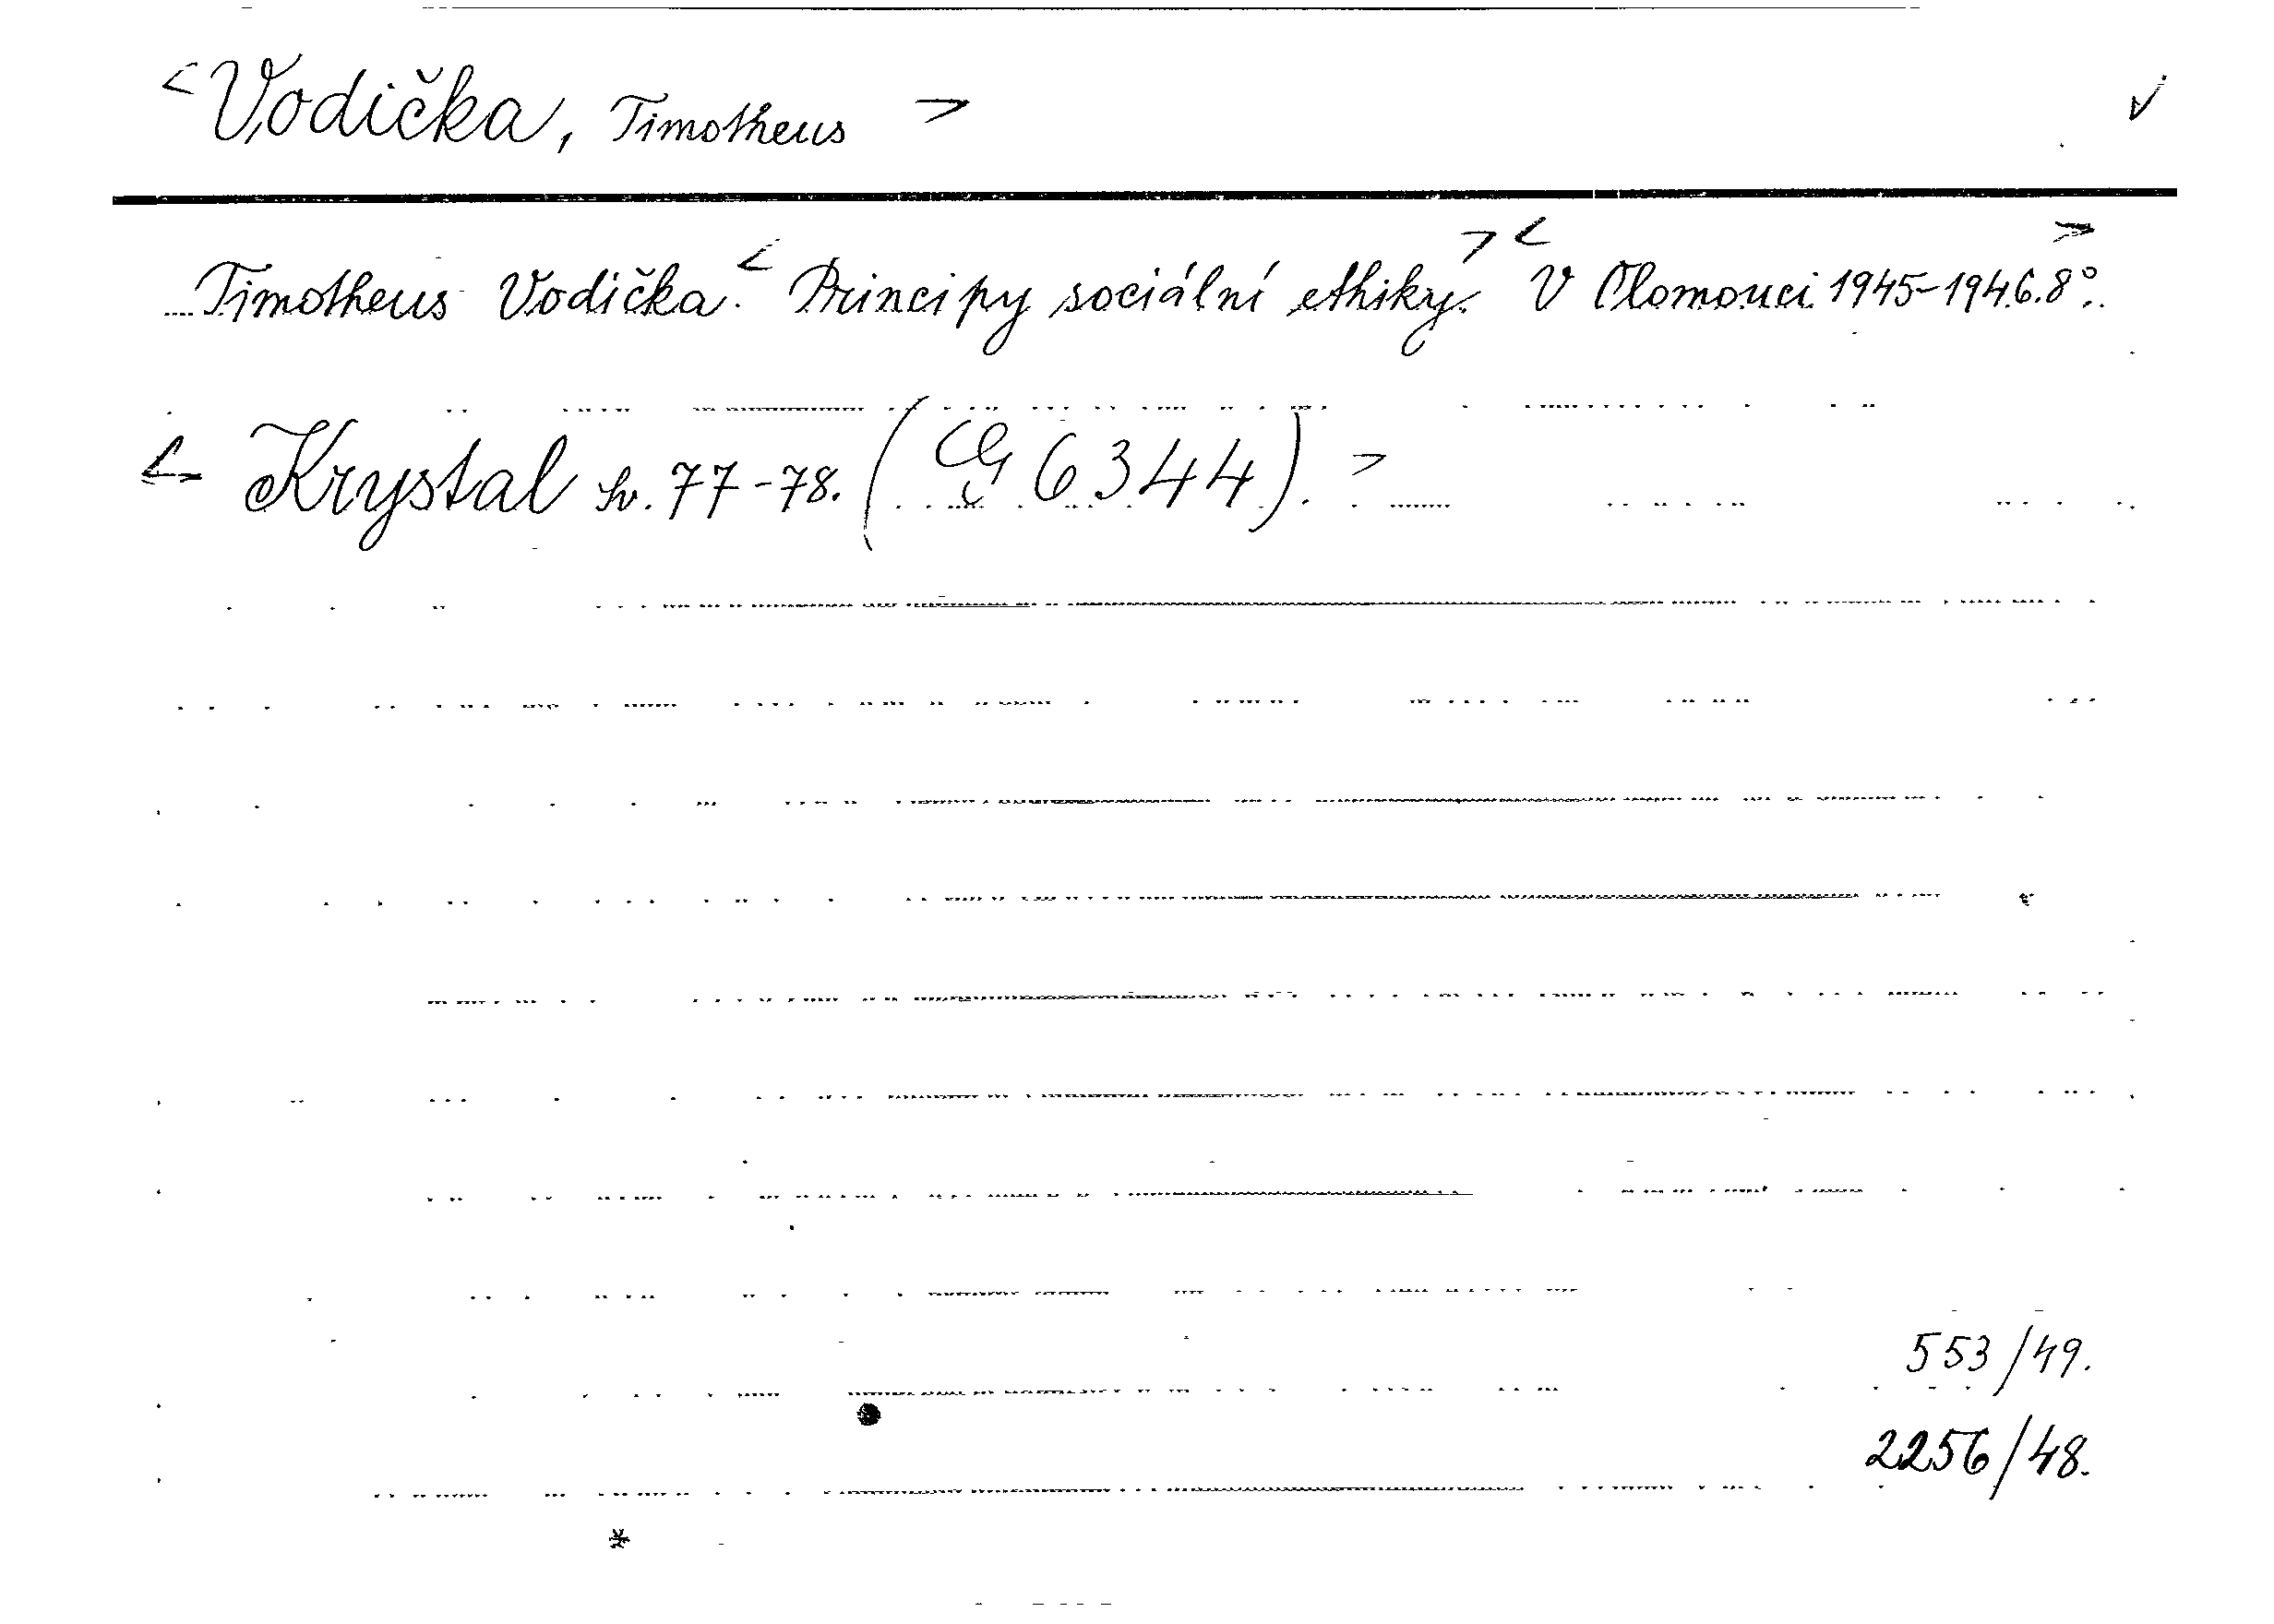 <Vodička, Timotheus> √
Timotheus Vodička.<Principy sociální ethiky.><V Olomouci 1945-1946.8°.>
<Krystal sv. 77-78. ( 6344).>
553/49.
2256/48.
*